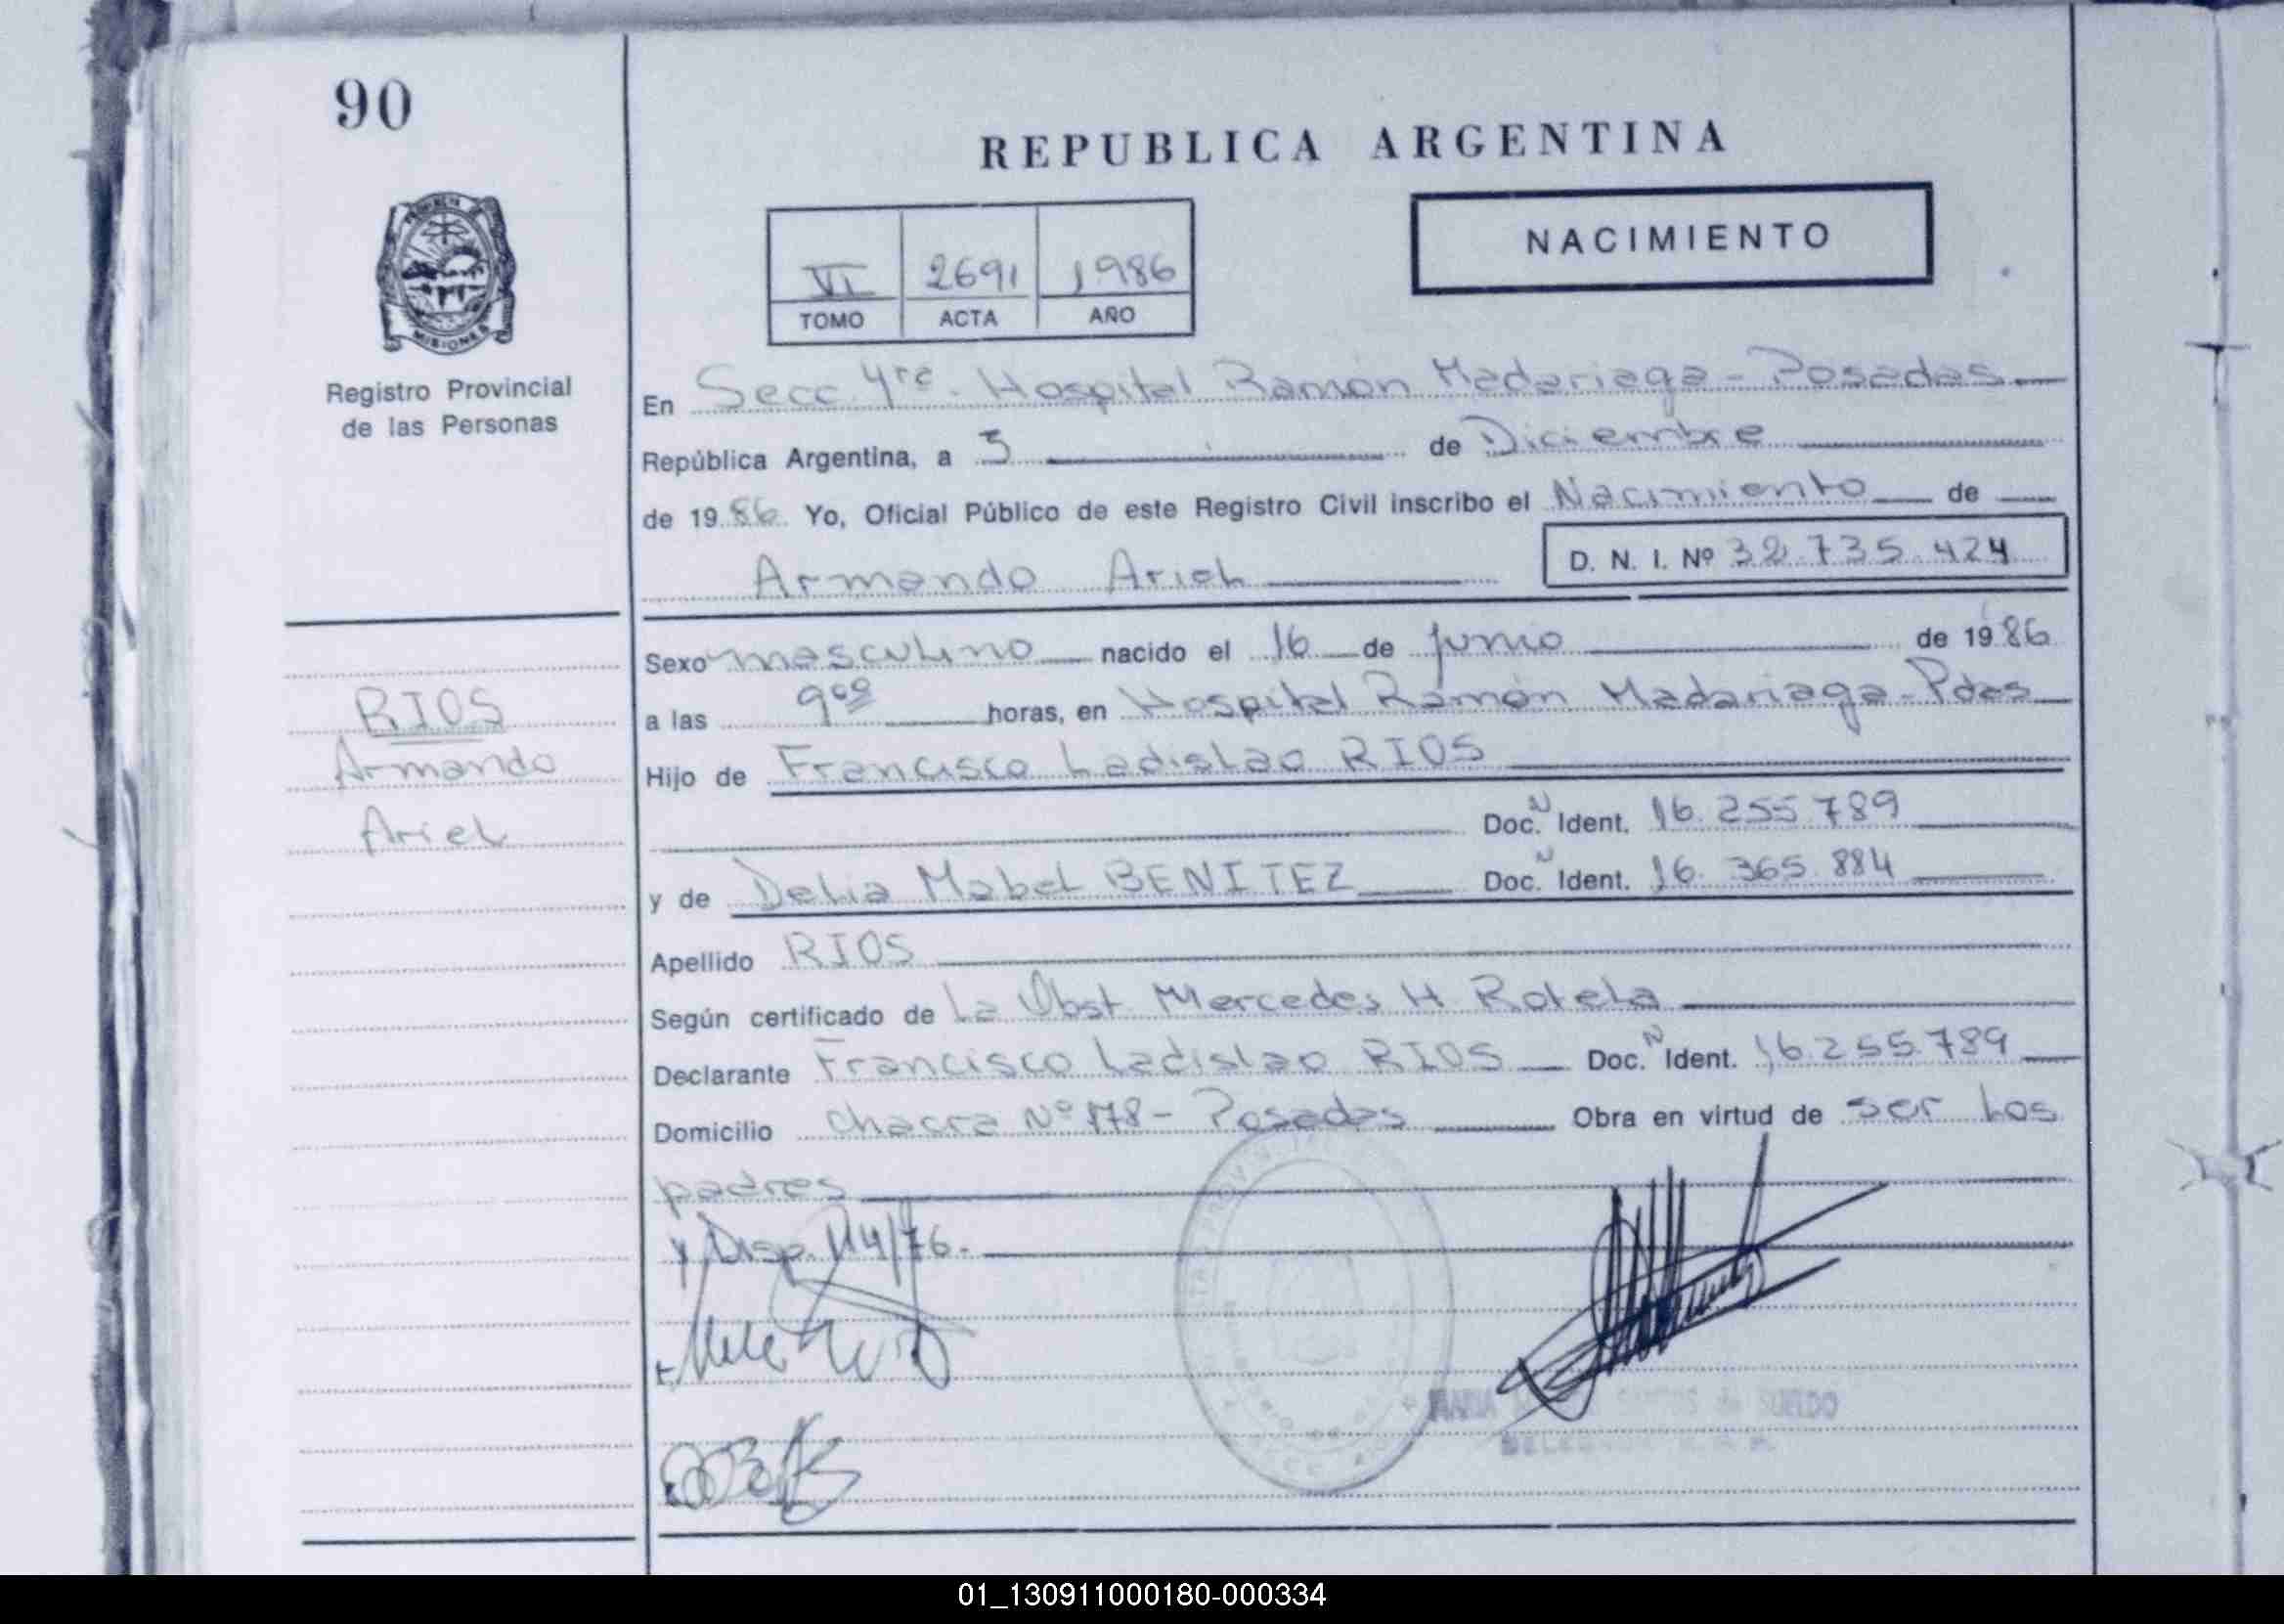 90
REPUBLICA ARGENTINA
VI 2691 1986
TOMO ACTA AÑO
NACIMIENTO
MISIONES
Registro Provincial
de las Personas
En Secc. 4ta. Hospital Ramón Madariaga - Posadas
República Argentina, a 3 de Diciembre
de 1986 Yo, Oficial Público de este Registro Civil inscribo el Nacimiento de
Armando Ariel D. N. I. Nº 32.735.424
RIOS
Armando
Ariel
Sexo masculino nacido el 16 de junio de 1986
a las 9 horas, en Hospital Ramón Madariaga - Pdas
Hijo de Francisco Ladislao RIOS
Doc. N Ident. 16.255.789
y de Delia Mabel BENITEZ Doc. N Ident. 16.365.884
Apellido RIOS
Según certificado de La Obst. Mercedes H. Rotela
Declarante Francisco Ladislao RIOS Doc. N Ident. 16.255.789
Domicilio Chacra Nº 178 - Posadas Obra en virtud de ser los
padres
y Disp. 114/76.
MARIA SANTOS de SUELDO
01_130911000180-000334